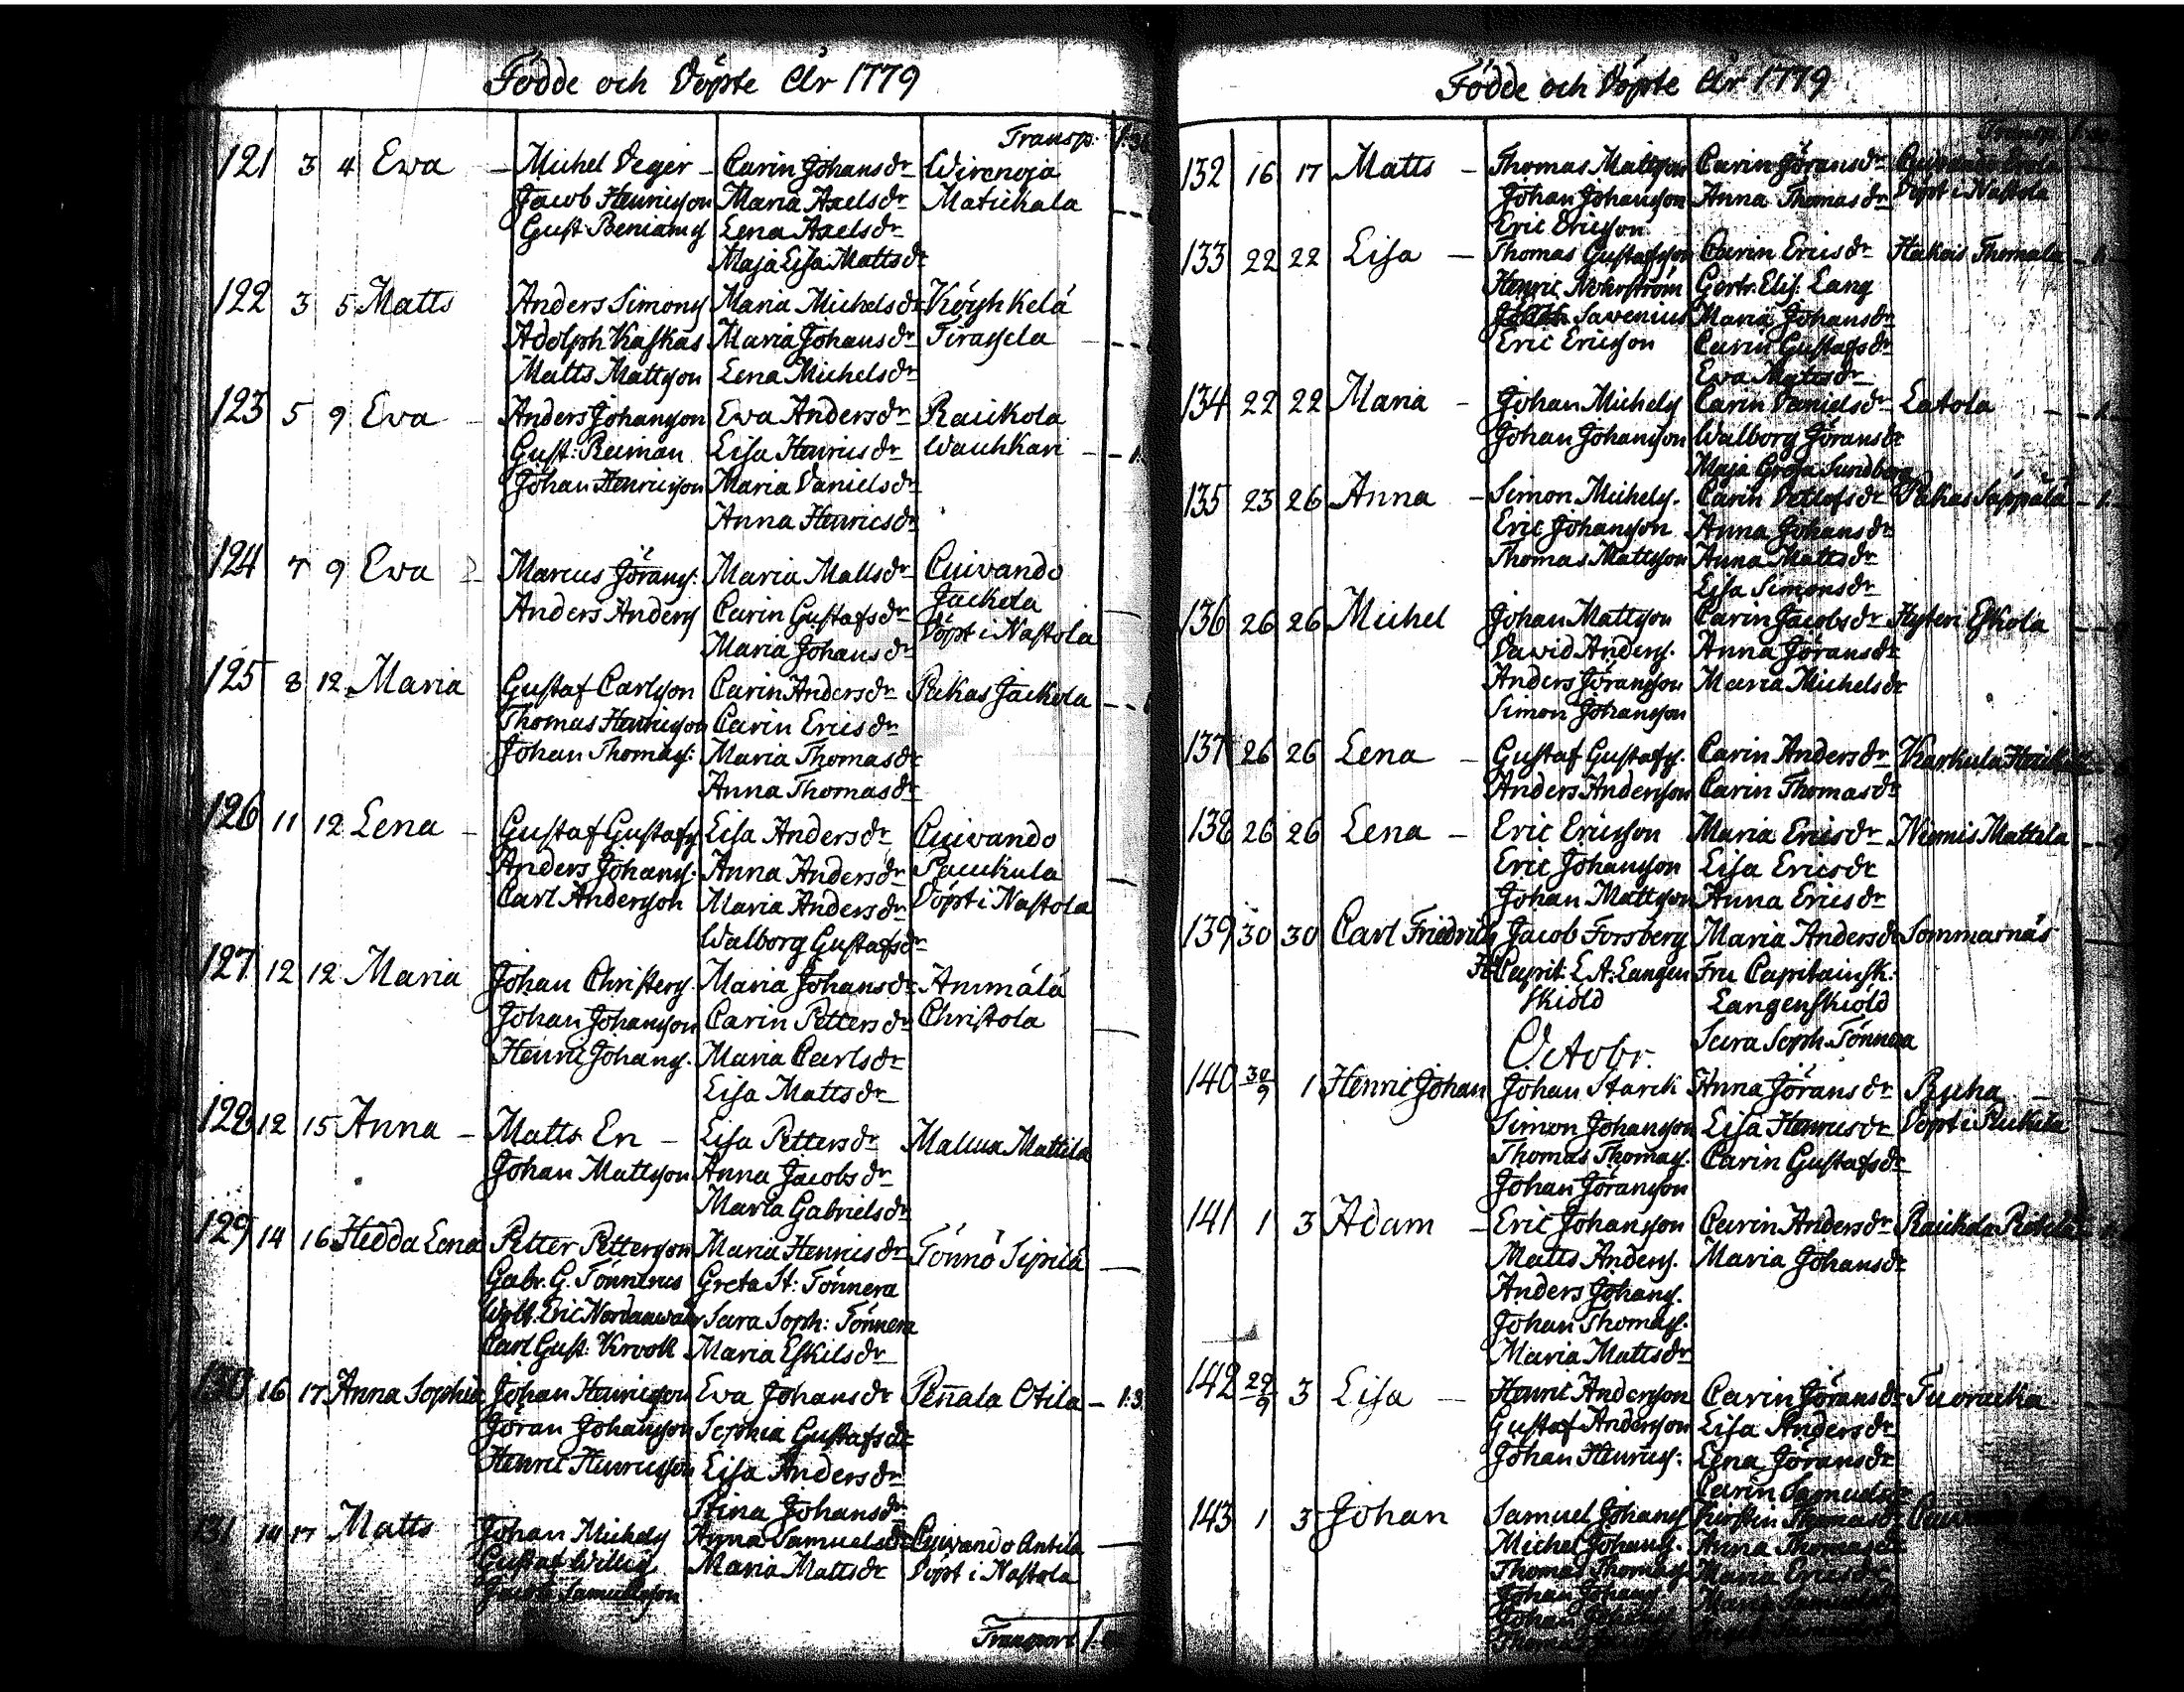 Födde och Döpte År 1779
Transp:
121 3 4 Eva - Michel Veger - Carin Johansdr Wirenoja
Jacob Henricsson Maria Axelsdr Matickala
Gust. Beniams Lena Axelsdr
Maja Lisa Mattsdr
122 3 5 Matts Anders Simons Maria Michelsdr Köyhkelä
Adolph Kaskas Maria Johansdr Tirasela
Matts Mattsson Lena Michelsdr
123 5 9 Eva - Anders Johansson Eva Andersdr Raickola
Gust: Reiman Lisa Henricsdr Wauhkari
Johan Henricsson Maria Danielsdr
Anna Henricsdr
124 7 9 Eva Marcus Görans: Maria Mattsdr Cuivando
Anders Anders Carin Gustafsdr Jackola
Maria Johansdr Döpt i Nastola
125 8 12 Maria Gustaf Carlsson Carin Andersdr Pakas Jackola
Thomas Henricsson Carin Ericsdr
Johan Thomas: Maria Thomasdr
Anna Thomasdr
126 11 12 Lena - Gustaf Gustafs Lisa Andersdr Cuivando
Anders Johans: Anna Andersdr Pauckula
Carl Andersson Maria Andersdr Döpt i Nastola
Walborg Gustafsdr
127 12 12 Maria Johan Christers. Maria Johansdr Ammälä
Johan Johansson Carin Pettersdr Christola
Henric Johans. Maria Carlsdr
Lisa Mattsdr
128 12 15 Anna - Matts En - Lisa Pettersdr Mallux Mattila
Johan Mattsson Anna Jacobsdr
Maria Gabrielsdr
129 14 16 Hedda Lena Petter Pettersson Maria Henricsdr Tönnö Sipilä
Gabr. G. Tönnerus Greta St: Tönnera
Eric Sara Soph: Tönnera
Carl Gust. Krook Maria Eskilsdr
130 16 17 Anna Sophia Johan Henricsson Eva Johansdr Pennala Otila
Göran Johansson Sophia Gustafsdr
Henric Henricsson Lisa Andersdr
Stina Johansdr
131 14 17 Matts Johan Michels Anna Samuelsdr Cuivando Antila
Gustaf Willigs Maria Mattsdr Döpt i Nastola
Jacob Samuelsson
Transport
Födde och Döpte År 1779
132 16 17 Matts - Thomas Mattsson Carin Göransdr Cuivando
Johan Johansson Anna Thomasdr Döpt i Nastola
Eric Ericsson
133 22 22 Lisa - Thomas Gustafsson Carin Ericsdr Hakois Thomala
Henric Nohrström Gertr. Elis: Lang
Savenius Maria Johansdr
Eric Ericsson Carin Gustafsdr
Eva Mattsdr
134 22 22 Maria - Johan Michels Carin Danielsdr Latola
Johan Johansson Walborg Göransdr
Maja Greta Sundberg
135 23 26 Anna - Simon Michels. Carin Detlofsdr Pakas Säppälä
Eric Johansson Anna Johansdr
Thomas Mattsson Anna Mattsdr
Lisa Simonsdr
136 26 26 Michel Johan Mattsson Carin Jacobsdr Hyteri Eskola
David Anders. Anna Göransdr
Anders Göransson Maria Michelsdr
Simon Johansson
137 26 26 Lena - Gustaf Gustafs. Carin Andersdr Karkula
Anders Andersson Carin Thomasdr
138 26 26 Lena - Eric Ericsson Maria Ericsdr Niemis Mattila
Eric Johansson Lisa Ericsdr
Johan Mattsson Anna Ericsdr
139 30 30 Carl Friedrich Jacob Forsberg Maria Andersdr Sommarnäs
Capit: L A: Langen Fru Capitainsk:
skiöld Langenskiöld
Sara Soph. Tönnera
Octobr.
140 30/9 1 Henric Johan Johan Starck Anna Göransdr Ruha
Simon Johansson Lisa Henricsdr Döpt i
Thomas Thomas. Carin Gustafsdr
Johan Göransson
141 1 3 Adam - Eric Johansson Carin Andersdr Raickola
Matts Anders. Maria Johansdr
Anders Johans.
Johan Thomas.
Maria Mattsdr
142 29/9 3 Lisa - Henric Andersson Carin Göransdr Tuoracka
Gustaf Andersson Lisa Andersdr
Johan Henrics: Lena Göransdr
Carin Samuelsdr
143 1 3 Johan Samuel Johans Kirstin Thomasdr
Michel Johans. Anna Thomasdr
Thomas Thomas Maria Ericsdr
Johan Johans Maria Samuelsdr
Johan
Thomas